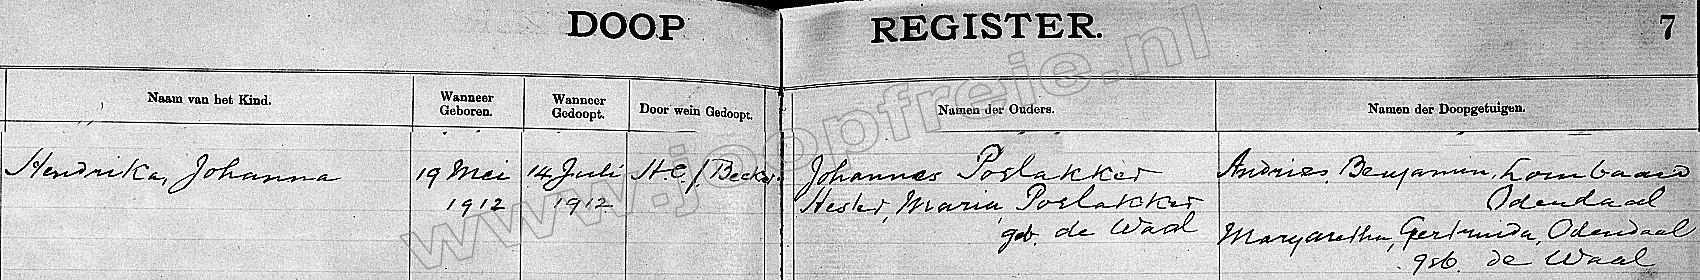 DOOP REGISTER. 7
Naam van het Kind. Wanneer Geboren. Wanneer Gedoopt. Door wein Gedoopt. Namen der Ouders. Namen der Doopgetuigen.
Hendrika, Johanna 19 Mei 14 Juli H.C.J. Becker. Johannes Poslakker Andries, Benjamin, Lombaard
1912 1912 Hester, Maria, Poslakker Odendaal
geb. de Waal Margaretha, Gertruida, Odendaal
geb. de Waal
www.joopfreie.nl